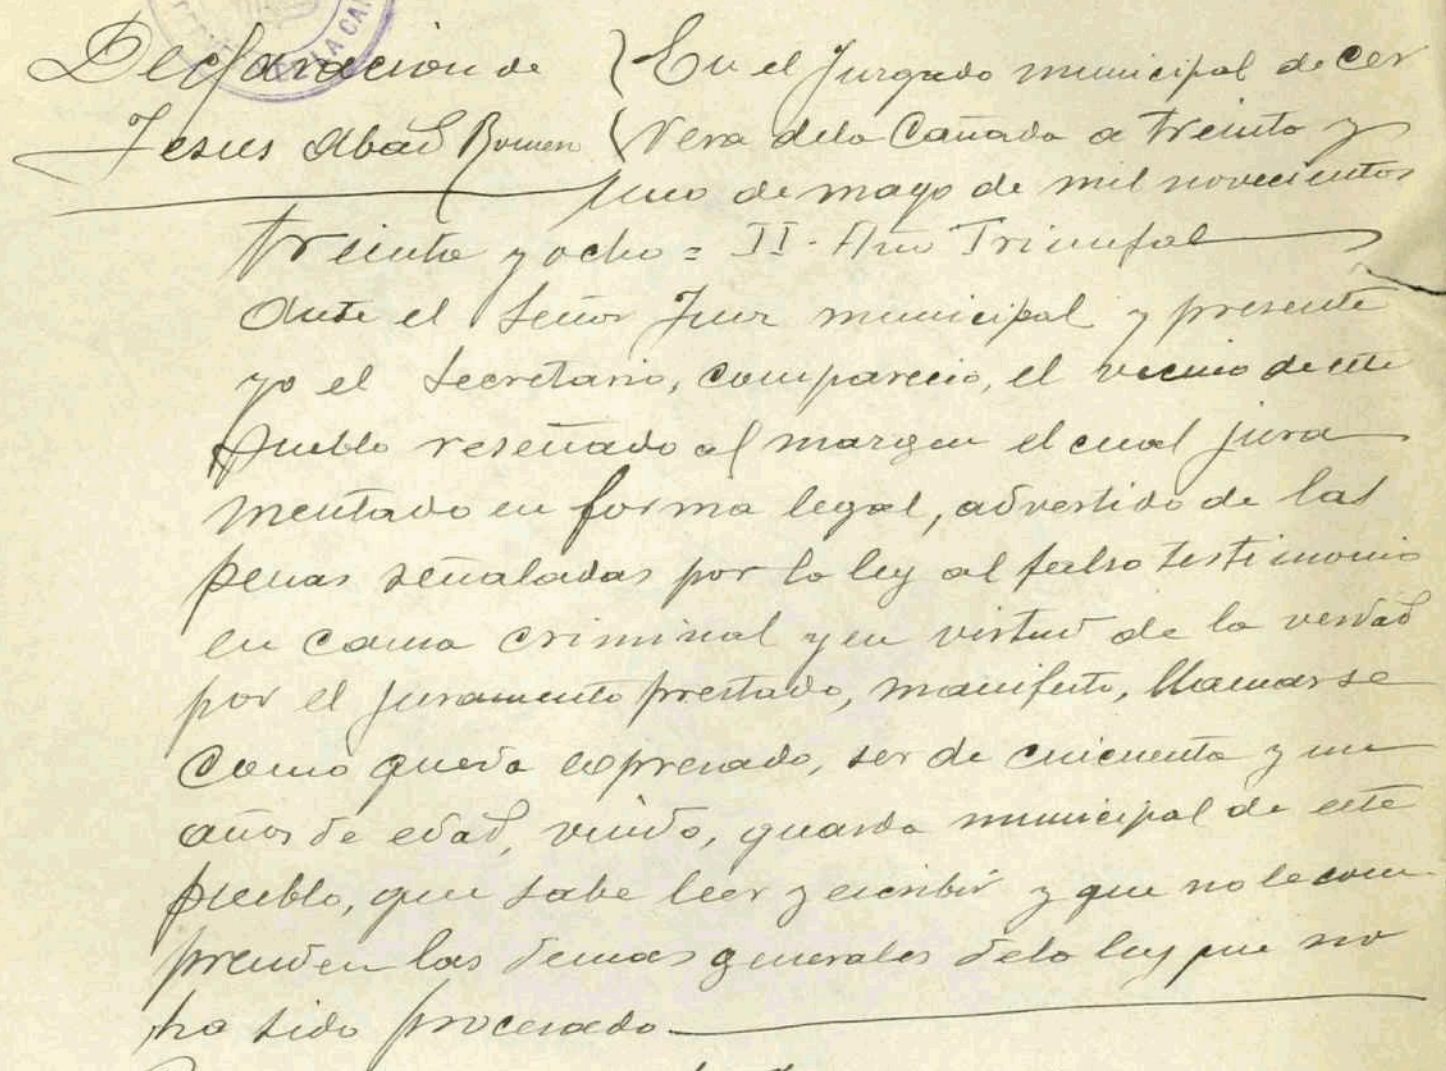 Declaracion de
Jesus Abad Romero
En el Juzgado municipal de Cer
vera dela Cañada a treinta y
uno de mayo de mil novecientos
treinta y ocho = II - Año Triunfal
Ante el Señor Juez municipal y presente
yo el Secretario, comparecio, el vecino de este
pueblo reseñado al margen el cual jura
mentado en forma legal, advertido de las
penas señaladas por la ley al falso testimonio
en causa criminal y en virtud de la verdad
por el juramento prestado, manifesto, llamarse
como queda expresado, ser de cincuenta y un
años de edad, viudo, guarda municipal de este
pueblo, que sabe leer y escribir y que no le com
prenden las demas generales dela ley que no
ha sido procesado
LA CAÑ